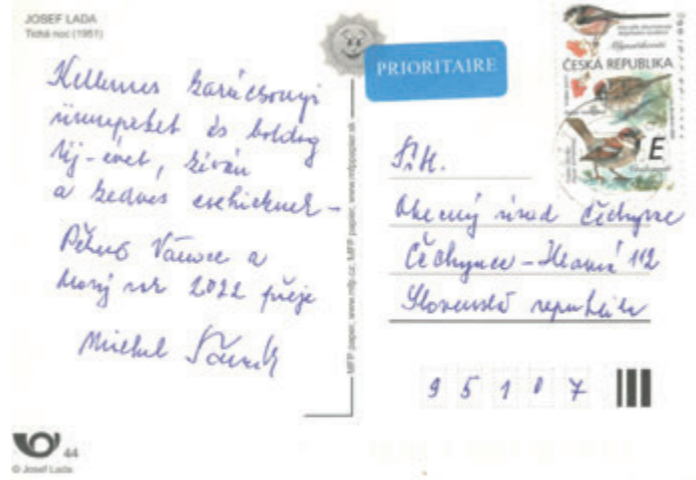 JOSEF LADA
Tichá noc (1951)
Kellemes karácsonyi
ünnepeket és boldog
Új-évet, kíván
a kedves
Pěkné Vánoce a
Nový rok 2022 přeje
Michal
MFP paper, www.mfp.cz, MFP paper, www.mfppapier.sk
44
© Josef Lada
PRIORITAIRE
ČESKÁ REPUBLIKA
E
Obecný úrad Čechynce
Čechynce – Hlavná 112
Slovenská republika
95107